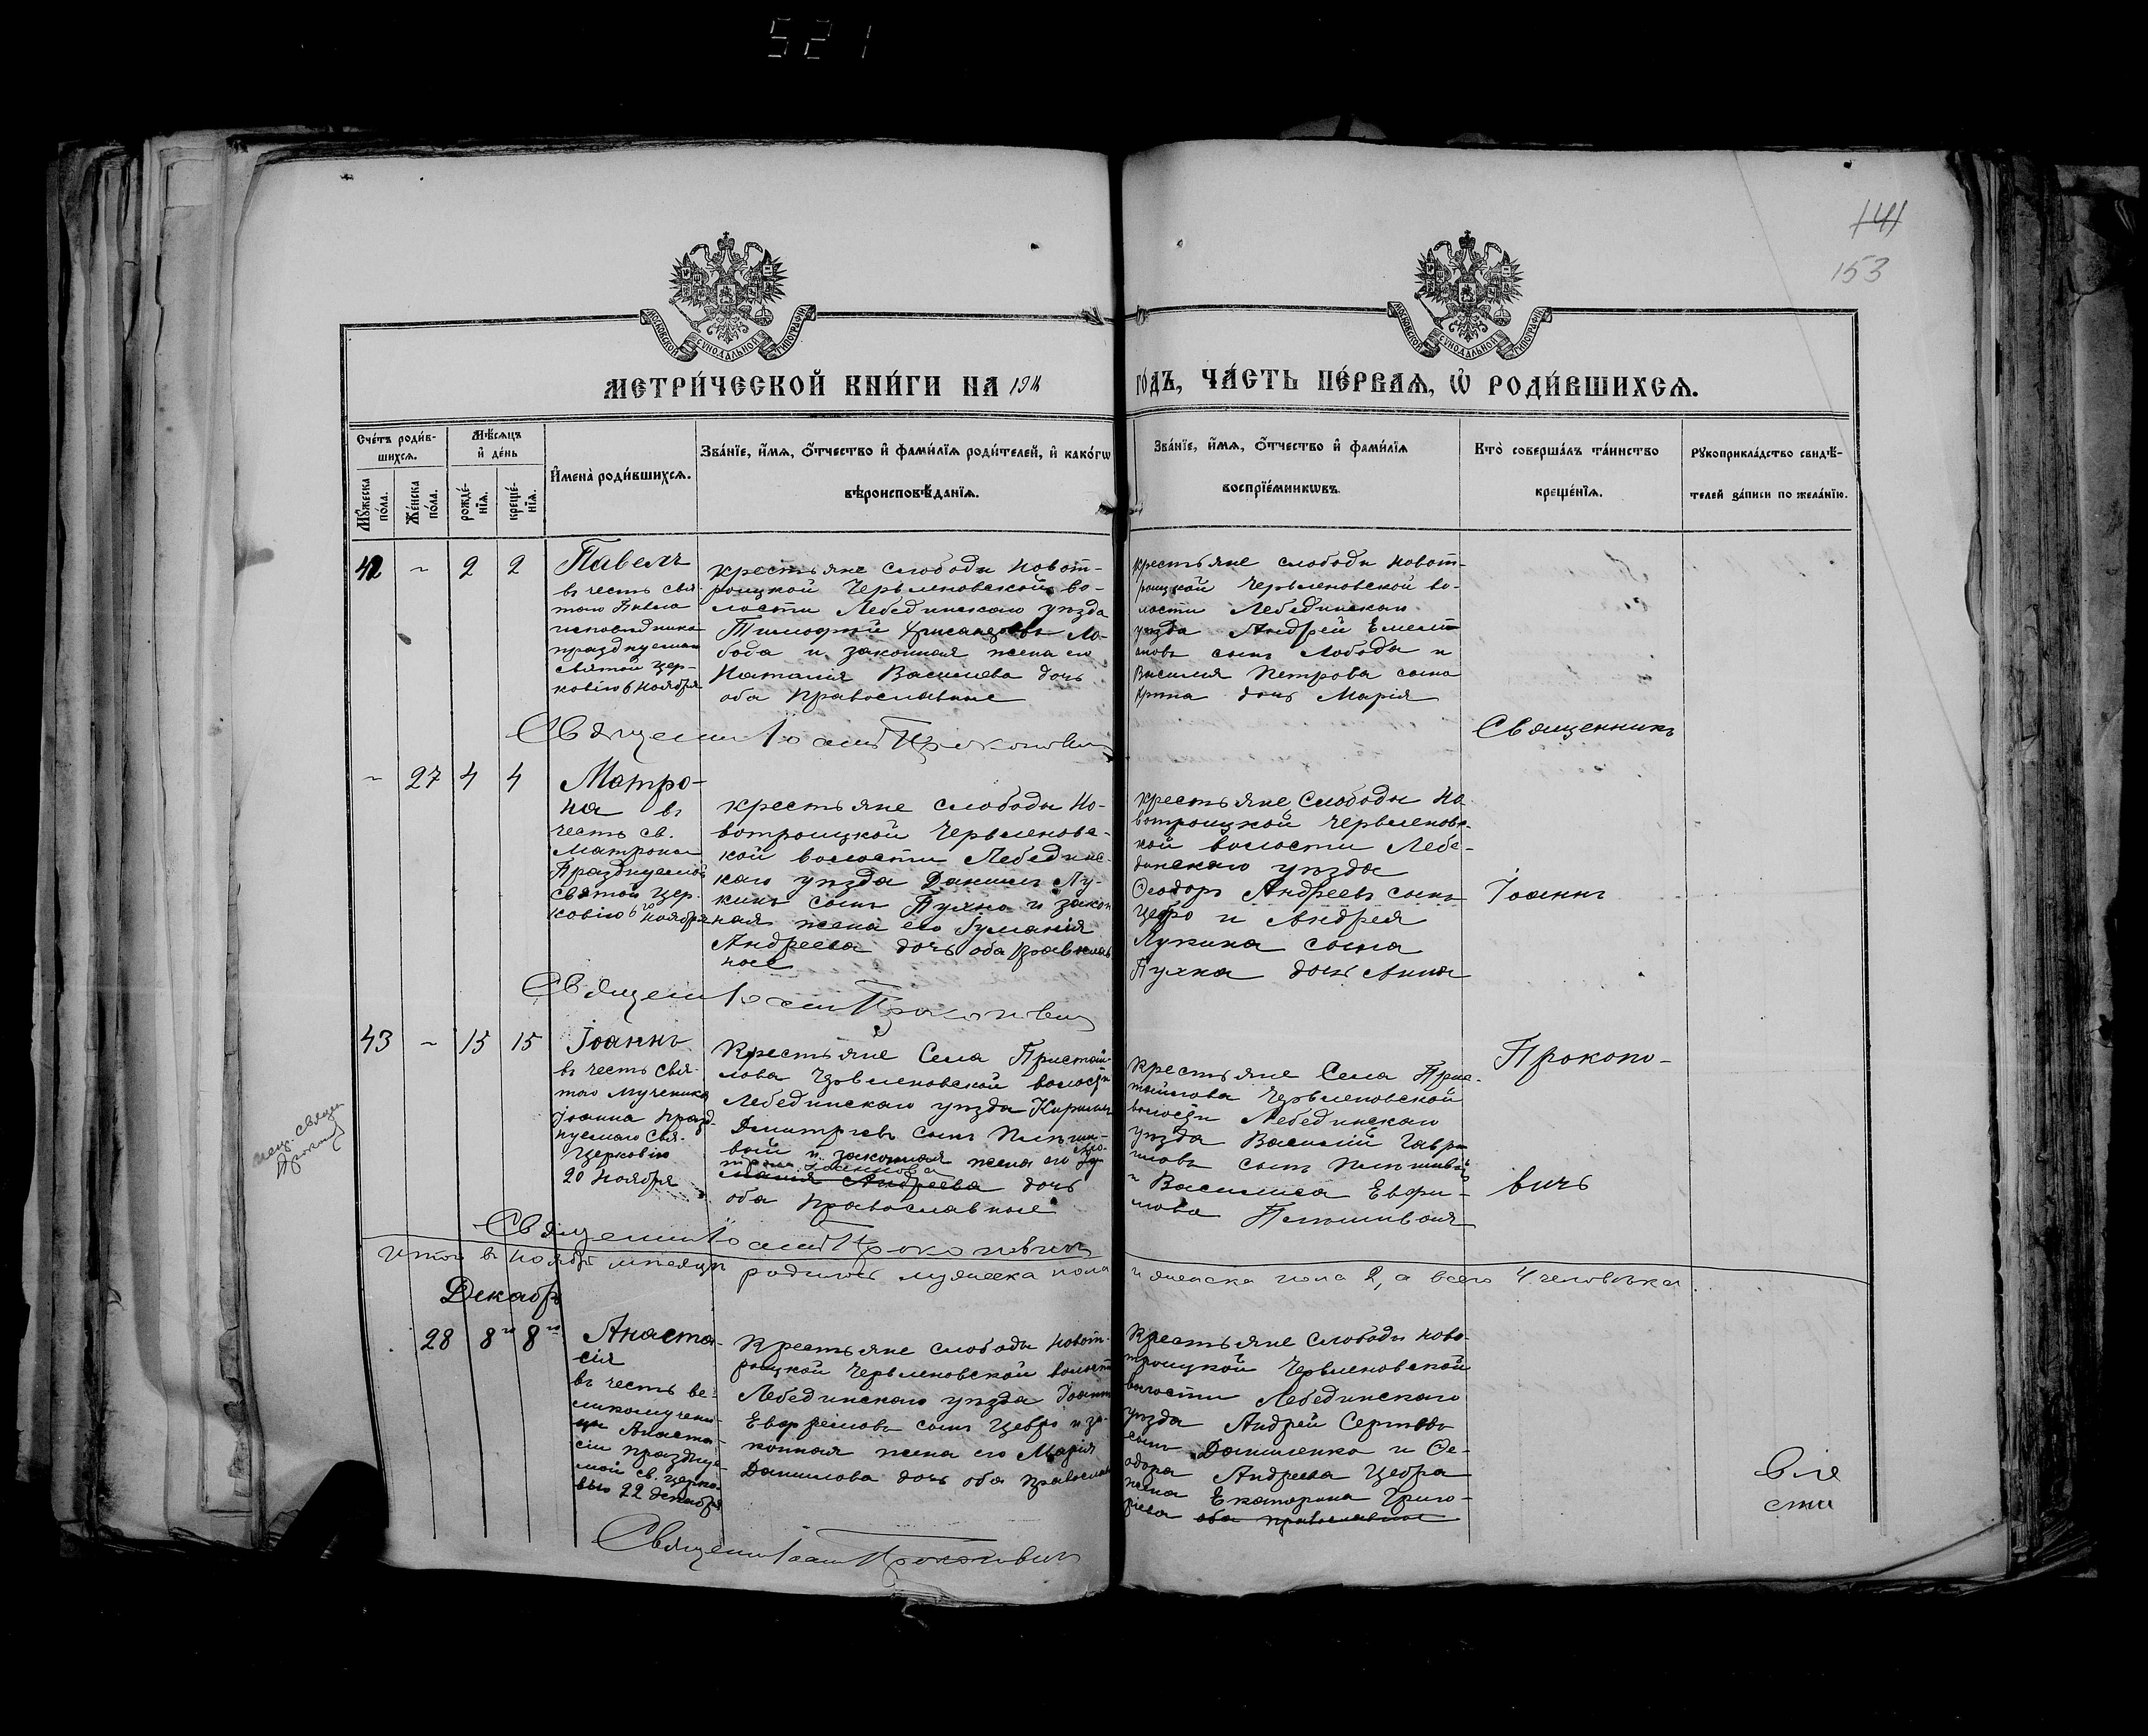 521
141
153
МОСКОВСКОЙ СѴНОДАЛЬНОЙ ТИПОГРАФІИ
МОСКОВСКОЙ СѴНОДАЛЬНОЙ ТИПОГРАФІИ
МЕТРИ́ЧЕСКОЙ КНИ́ГИ НА 191
ГО́ДЪ, ЧА́СТЬ ПЕ́РВАѦ, Ѡ҆ РОДИ́ВШИХСѦ.
Сче́тъ роди́в-
шихсѧ.
Мѣ́сѧцъ
и҆ де́нь
Мꙋ́жеска
по́ла.
Же́нска
по́ла.
рожде́-
нїѧ.
креще́-
нїѧ.
И҆мена̀ роди́вшихсѧ.
Зва́нїе, и҆́мѧ, ѻ҆́тчество и҆ фами́лїѧ роди́телей, и҆ како́гѡ
вѣроисповѣ́данїѧ.
Зва́нїе, и҆́мѧ, ѻ҆́тчество и҆ фами́лїѧ
воспрїе́мникѡвъ.
Кто̀ соверша́лъ та́инство
креще́нїѧ.
Рꙋкоприкла́дство свидѣ́-
телей за́писи по жела́нїю.
42 ~ 2 2
Павелъ
въ честь свя-
того Павла
исповѣдника
празднуемаго
святой цер-
ковію 6 Ноября
крестьяне слободы Новот-
роицкой Червленовской во-
лости Лебединскаго уѣзда
Тимофей Лo-
бода и законная жена его
Наталія Васильева дочь
оба Православные
крестьяне слободы Новот-
роицкой Червленовской во-
лости Лебединскаго
уѣзда Андрей Емель-
яновъ сынъ Лобода и
Василія Петрова сына
дочь Марія
Священникъ Іоаннъ Прокоповичъ
Священникъ
~ 27 4 4
Матро-
на въ
честь св.
Матроны
Празднуемой
Святой Цер-
ковію 6го Ноября
крестьяне слободы Но-
вотроицкой Червленовс-
кой волости Лебединс-
каго уѣзда Даніилъ Лу-
кинъ сынъ Пулха и закон
ная жена его Іуліанія
Андреева дочь оба Православ
ные
крестьяне Слободы Но
вотроицкой Червленовс-
кой волости Лебе-
динскаго уѣзда
Ѳеодоръ Андреевъ сынъ
Цебро и Андрея
Лукина сына
Пулха дочь Анна
Іоаннъ
Священникъ Іоаннъ Прокоповичъ
43 ~ 15 15
Іоаннъ
въ честь Свя-
того Мученика
Іоанна празд-
нуемаго Свя.
Церковію
20 Ноября
Крестьяне Села Пристай-
лова Червленовской волости
Лебединскаго уѣзда Кириллъ
Димитріевъ сынъ
вый и законная жена его
Андреева дочь
оба Православные
крестьяне Села Прис-
тайлова Червленовской
волости Лебединскаго
уѣзда Василій Гаври-
иловъ сынъ
и Василиса Евфи-
мова
Прокопо-
вичъ
Священникъ Іоаннъ Прокоповичъ
Итого въ Ноябрѣ мѣсяцѣ родилось мужеска пола
и женска пола 2, а всего 4 человѣка.
Декабрь
28 8го 8го
Анаста-
сія
въ честь ве-
ликомучени-
цы Анаста-
сіи празднуе-
мой св. церко-
вью 22 декабря
Крестьяне слободы Новот-
роицкой Червленовской волости
Лебединскаго уѣзда Іоаннъ
Евфремовъ сынъ Цебро и за-
конная жена его Марія
Данилова дочь оба Православн
Крестьяне Слободы Ново-
троицкой Червленовской
волости Лебединскаго
уѣзда Андрей Сергѣевъ
сынъ Даниленко и Ѳе-
одора Андреева Цебра
жена Екатерина Григо-
рьева оба православные
Священникъ Іоаннъ Прокоповичъ